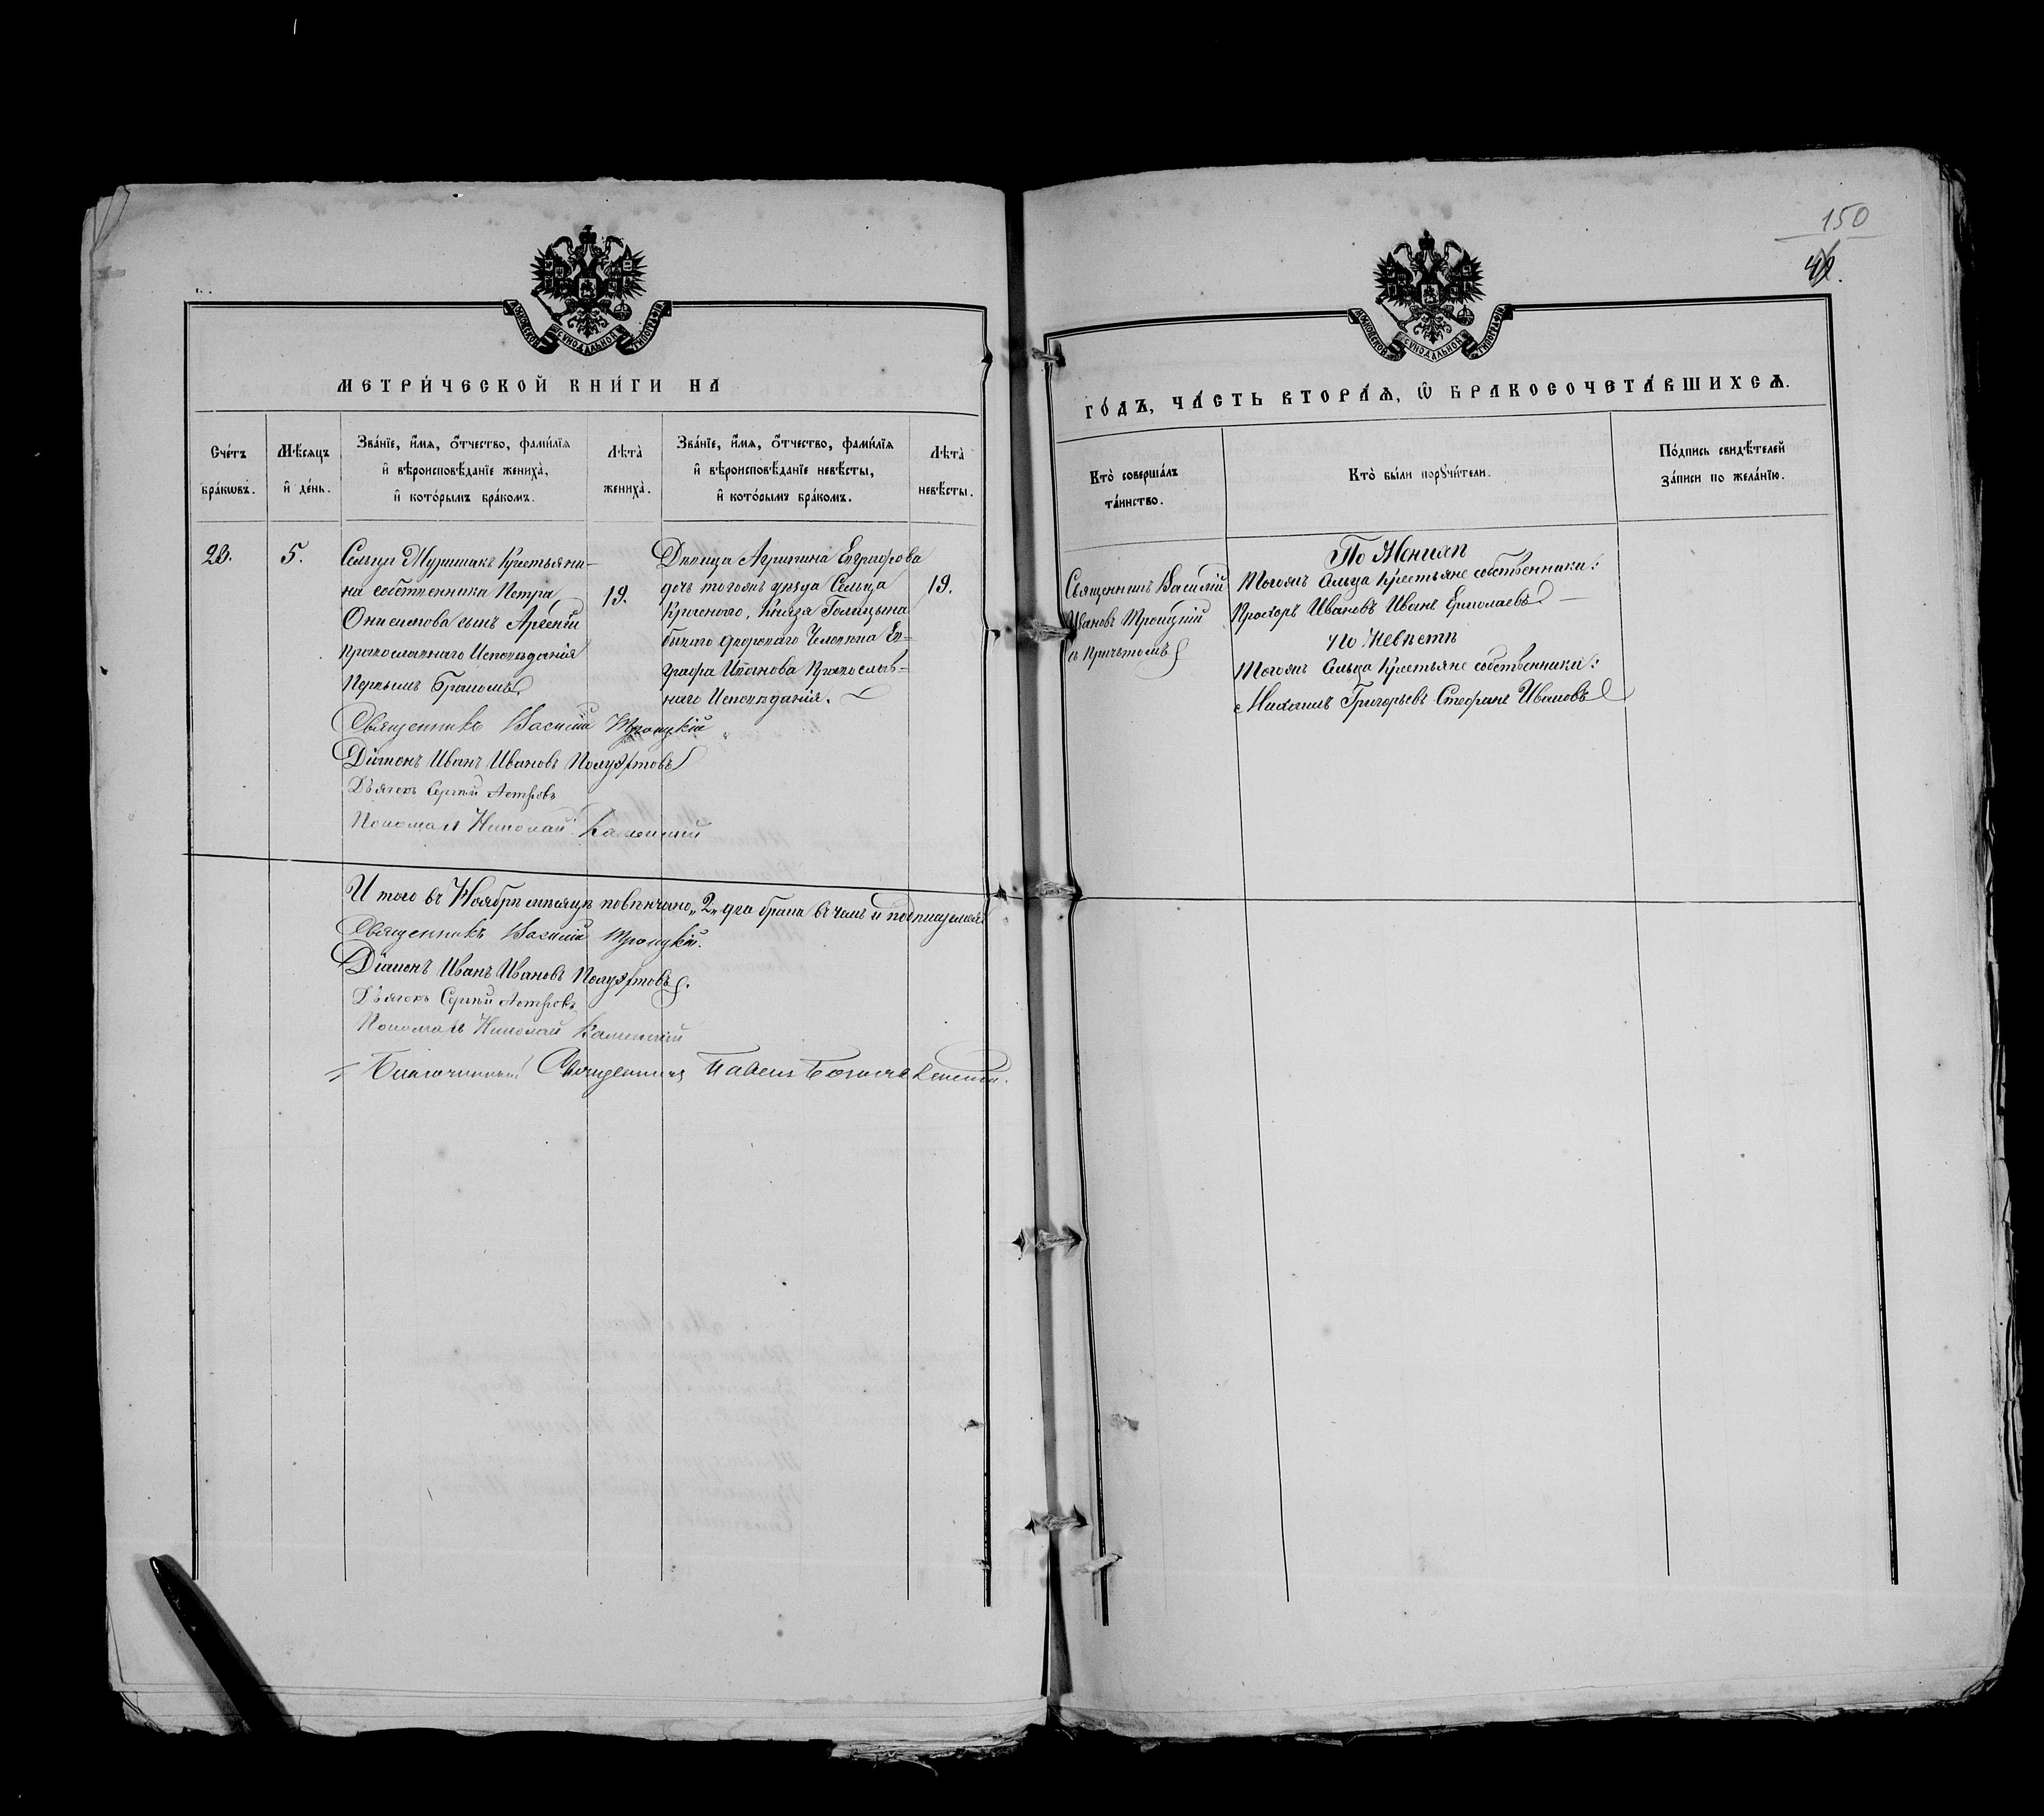 МОСКОВСКОЙ СѴНОДАЛЬНОЙ ТИПОГРАФІИ
МЕТРИ́ЧЕСКОЙ КНИ́ГИ НА
Сче́тъ бра́кѡвъ.
Мѣ́сяцъ и҆ де́нь.
Зва́нїе, и҆́мя, ѻ҆́тчество, фами́лїя
и҆ вѣроисповѣ́данїе жениха̀,
и҆ кото́рымъ бра́комъ.
Лѣта̀ жениха̀.
Зва́нїе, и҆́мя, ѻ҆́тчество, фами́лїя
и҆ вѣроисповѣ́данїе невѣ́сты,
и҆ кото́рымъ бра́комъ.
Лѣта̀ невѣ́сты.
5.
Крестьяни-
на собственника Петра
Онисимова сынъ Арсеній
православнаго Исповѣданія
Первымъ бракомъ
19.
Дѣвица Агрипина Евграфова
дочь тогожъ уѣзда Сельца
Князя Голицына
бывшаго двороваго Человека Ев-
графа Иванова Православ-
наго Исповѣданія.
19.
Священникъ Василій Троицкій
Діаконъ Иванъ Ивановъ Полуехтовъ
Дьячокъ Сергѣй
Пономарь Николай Каменскій
И того въ Ноябрѣ мѣсяцѣ повѣнчано „2„ два брака въ чемъ и подписуемся
Священникъ Василій Троицкій.
Діаконъ Иванъ Ивановъ Полуехтовъ.
Дьячокъ Сергѣй
Пономарь Николай Каменскій
Благочинный Священникъ Павелъ
150
МОСКОВСКОЙ СѴНОДАЛЬНОЙ ТИПОГРАФІИ
ГО́ДЪ, ЧА́СТЬ ВТОРА́Я, Ѡ҆ БРАКОСОЧЕТА́ВШИХСЯ.
Кто̀ соверша́лъ
та́инство.
Кто̀ бы́ли порꙋчи́тели.
По́дпись свидѣ́телей
за́писи по жела́нїю.
Священникъ Василій
Ивановъ Троицкій
съ Причтомъ
По Женихѣ
Тогожъ Сельца Крестьяне собственники:
Прохоръ Ивановъ Иванъ Ермолаевъ
По Невѣстѣ
Тогожъ Сельца Крестьяне собственники:
Михаилъ Григорьевъ Стефанъ Ивановъ